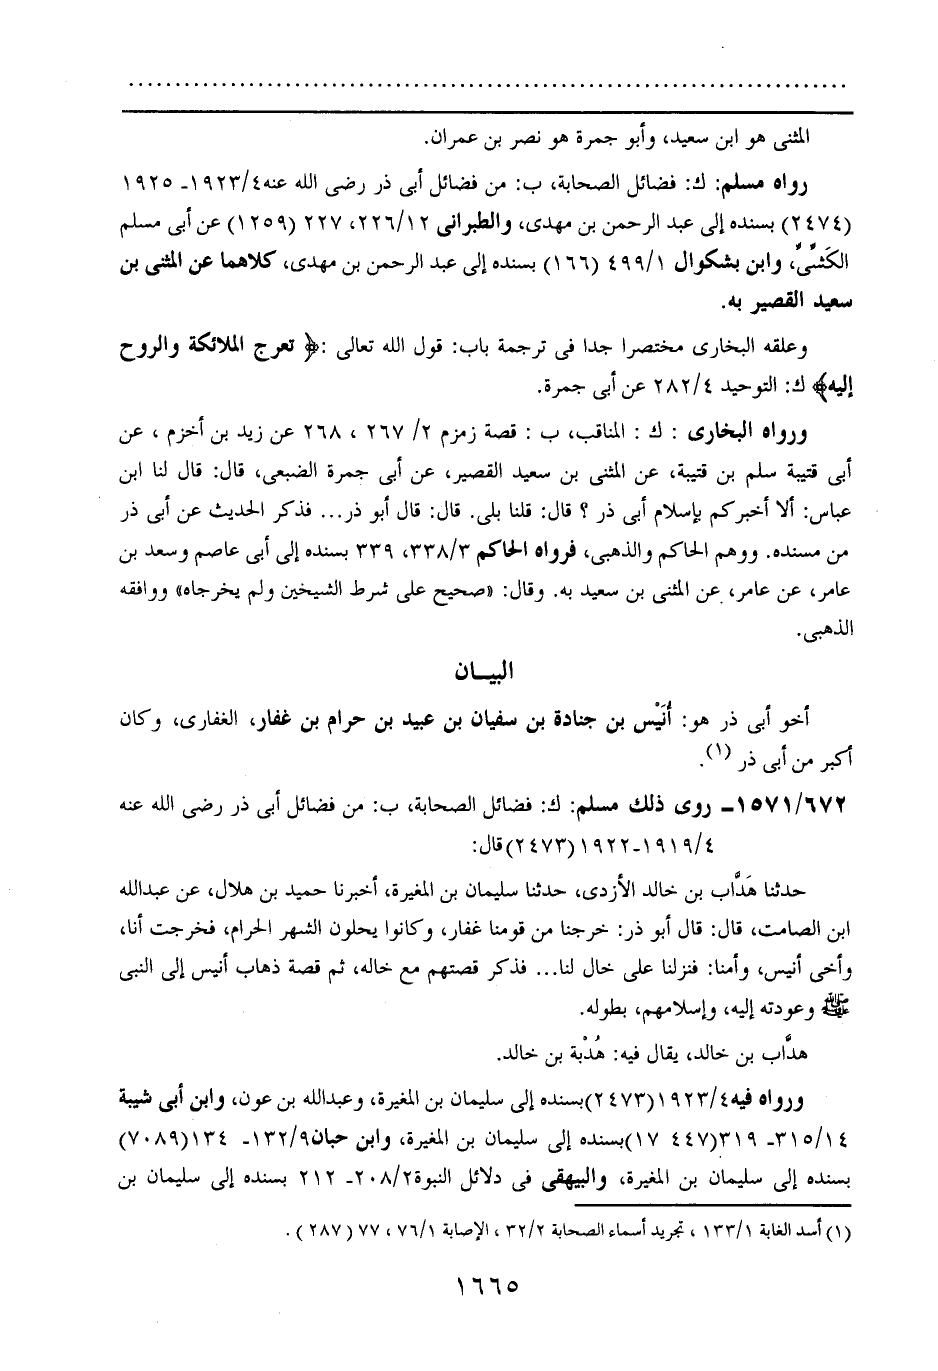 المثنى هو ابن سعيد، وأبو جمرة هو نصر بن عمران.
رواه مسلم: ك: فضائل الصحابة، ب: من فضائل أبى ذر رضى الله عنه٤/١٩٢٣ـ ١٩٢٥
(٢٤٧٤) بسنده إلى عبد الرحمن بن مهدى، والطبرانى ٢٢٦/١٢، ٢٢٧ (١٢٥٩) عن أبى مسلم
الكَشِّىُّ، وابن بشكوال ٤٩٩/١ (١٦٦) بسنده إلى عبد الرحمن بن مهدى، كلاهما عن المثنى بن
سعيد القصير به.
وعلقه البخارى مختصرا جدا فى ترجمة باب: قول الله تعالى :﴿ تعرج الملائكة والروح
إليه﴾ ك: التوحيد ٢٨٢/٤ عن أبى جمرة.
ورواه البخارى : ك : المناقب، ب : قصة زمزم ٢/ ٢٦٧ ، ٢٦٨ عن زيد بن أخزم ، عن
أبى قتيبة سلم بن قتيبة، عن المثنى بن سعيد القصير، عن أبى جمرة الضبعى، قال: قال لنا ابن
عباس: ألا أخبركم بإسلام أبى ذر ؟ قال: قلنا بلى. قال: قال أبو ذر... فذكر الحديث عن أبى ذر
من مسنده. ووهم الحاكم والذهبى، فرواه الحاكم ٣٣٨/٣، ٣٣٩ بسنده إلى أبى عاصم وسعد بن
عامر، عن عامر، عن المثنى بن سعيد به. وقال: «صحيح على شرط الشيخين ولم يخرجاه» ووافقه
الذهبى.
البيــان
أخو أبى ذر هو: أُنَيْس بن جنادة بن سفيان بن عبيد بن حرام بن غفار، الغفارى، وكان
أكبر من أبى ذر (١).
١٥٧١/٦٧٢ـ روى ذلك مسلم: ك: فضائل الصحابة، ب: من فضائل أبى ذر رضى الله عنه
١٩١٩/٤ـ١٩٢٢(٢٤٧٣)قال:
حدثنا هَدَّاب بن خالد الأزدى، حدثنا سليمان بن المغيرة، أخبرنا حميد بن هلال، عن عبدالله
ابن الصامت، قال: قال أبو ذر: خرجنا من قومنا غفار، وكانوا يحلون الشهر الحرام، فخرجت أنا،
وأخى أنيس، وأمنا: فنزلنا على خال لنا... فذكر قصتهم مع خاله، ثم قصة ذهاب أنيس إلى النبى
ﷺ وعودته إليه، وإسلامهم، بطوله.
هدَّاب بن خالد، يقال فيه: هُدْبة بن خالد.
ورواه فيه١٩٢٣/٤(٢٤٧٣)بسنده إلى سليمان بن المغيرة، وعبدالله بن عون، وابن أبى شيبة
٣١٥/١٤ـ ٣١٩(٤٤٧ ١٧)بسنده إلى سليمان بن المغيرة، وابن حبان١٣٢/٩ـ ١٣٤(٧٠٨٩)
بسنده إلى سليمان بن المغيرة، والبيهقى فى دلائل النبوة٢٠٨/٢ـ ٢١٢ بسنده إلى سليمان بن
(١) أسد الغابة ١٣٣/١ ، تجريد أسماء الصحابة ٣٢/٢ ، الإصابة ٧٦/١ ، ٧٧ (٢٨٧ ) .
١٦٦٥